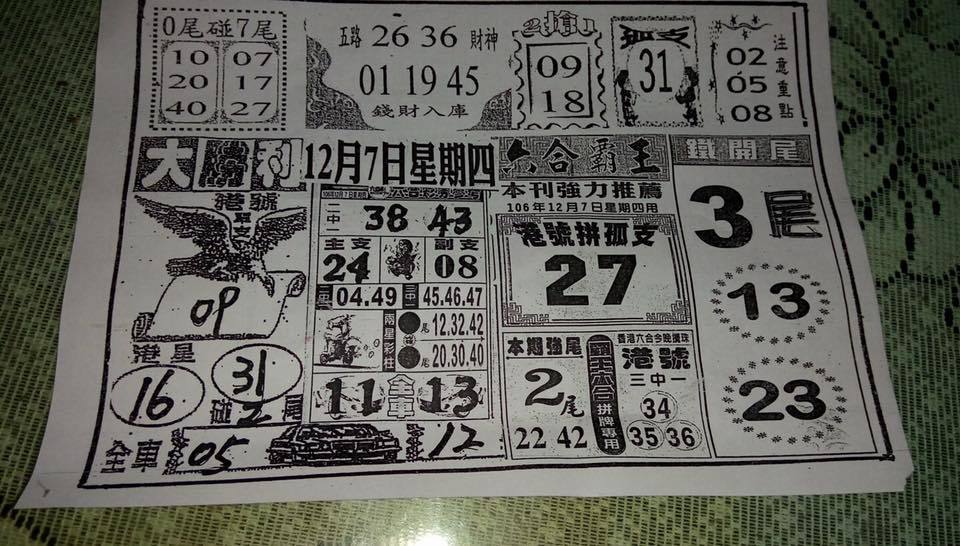 0尾碰7尾
10 07
20 17
40 27
五路 26 36 財神
01 19 45
錢財入庫
2搶1
09
18
孤支
31
02
05
08
注意重點
大 利
港號
單支
09
港星
16
31
碰 2 尾
全車 05 12
12月7日星期四
二中一 38 43
主支 副支
24 08
04.49 三中一 45.46.47
兩星彩柱
尾 12.32.42
尾 20.30.40
11 全車 13
六合霸王
本刊強力推薦
106年12月7日星期四用
港號拼孤支
27
本期強尾
2尾
22 42
六合
拼牌專用
香港六合今晚攪珠
港號
三中一
34
35 36
鐵開尾
3尾
13
23